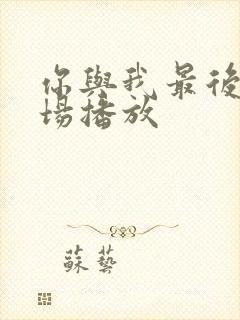 你與我最後
場播放
蘇藝